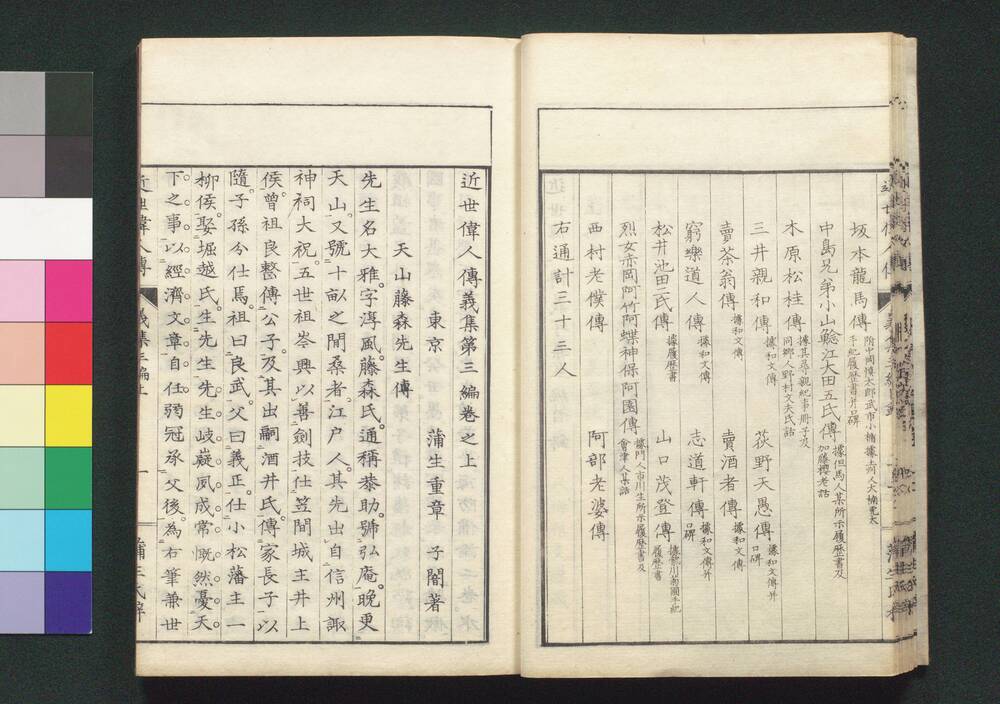 坂本龍馬傳 附中岡愼太郎武市小楯據土荷人大楠寬太手紀履歷書并口碑
中島兄弟小山鯰江大田五氏傳 據但馬人某所示履歷書及加藤櫻老話
木原松桂傳 據其尋親紀事冊子及同鄉人野村文夫氏話
三井親和傳 據和文傳 荻野天愚傳 據和文傳并口碑
賣茶翁傳 據和文傳 賣酒者傳 據和文傳
窮樂道人傳 據和文傳 志道軒傳 據和文傳并口碑
松井池田二氏傳 據履歷書 山口茂登傳 履歷書
烈女赤岡阿竹阿蝶神保阿園傳 據門人市川生所示履歷書及會津人某話
西村老僕傳 阿部老婆傳
右通計三十三人
近世偉人傳義集第三編卷之上
東京 蒲生重章 子闇著
天山藤森先生傳
先生名大雅。字淳風。藤森氏。通稱恭助。號弘庵。晚更
天山。又號十畝之閒桑者。江戶人。其先出自信州諏
神祠大祝。五世祖岑興以善劍技仕笠間城主井上
侯。曾祖良整傳公子。及其出嗣酒井氏。傳家長子以
隨。子孫今仕焉。祖曰良武。父曰義正。仕小松藩主一
柳侯。娶堀越氏。生先生。先生岐嶷夙成。常慨然憂天
下之事。以經濟文章自任。弱冠承父後。為右筆兼世
近世偉人傳 義集三編上 一